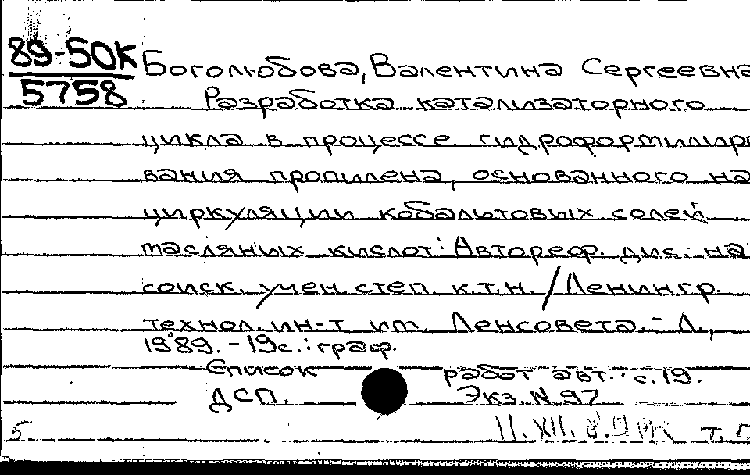 89-50К
5758
Боголюбова, Валентина Сергеевна
Разработка катализаторного
цикла в процессе гидроформилиро
вания пропилена, основанного на
циркуляции кобальтовых солей
масляных кислот: Автореф. дис. на
соиск. учен. степ. к.т.н. / Ленингр.
технол. ин-т им. Ленсовета. - Л.,
1989. - 19с. : граф.
Список работ авт.: с.19.
ДСП. Экз. N 97
5. 11. XII. т.